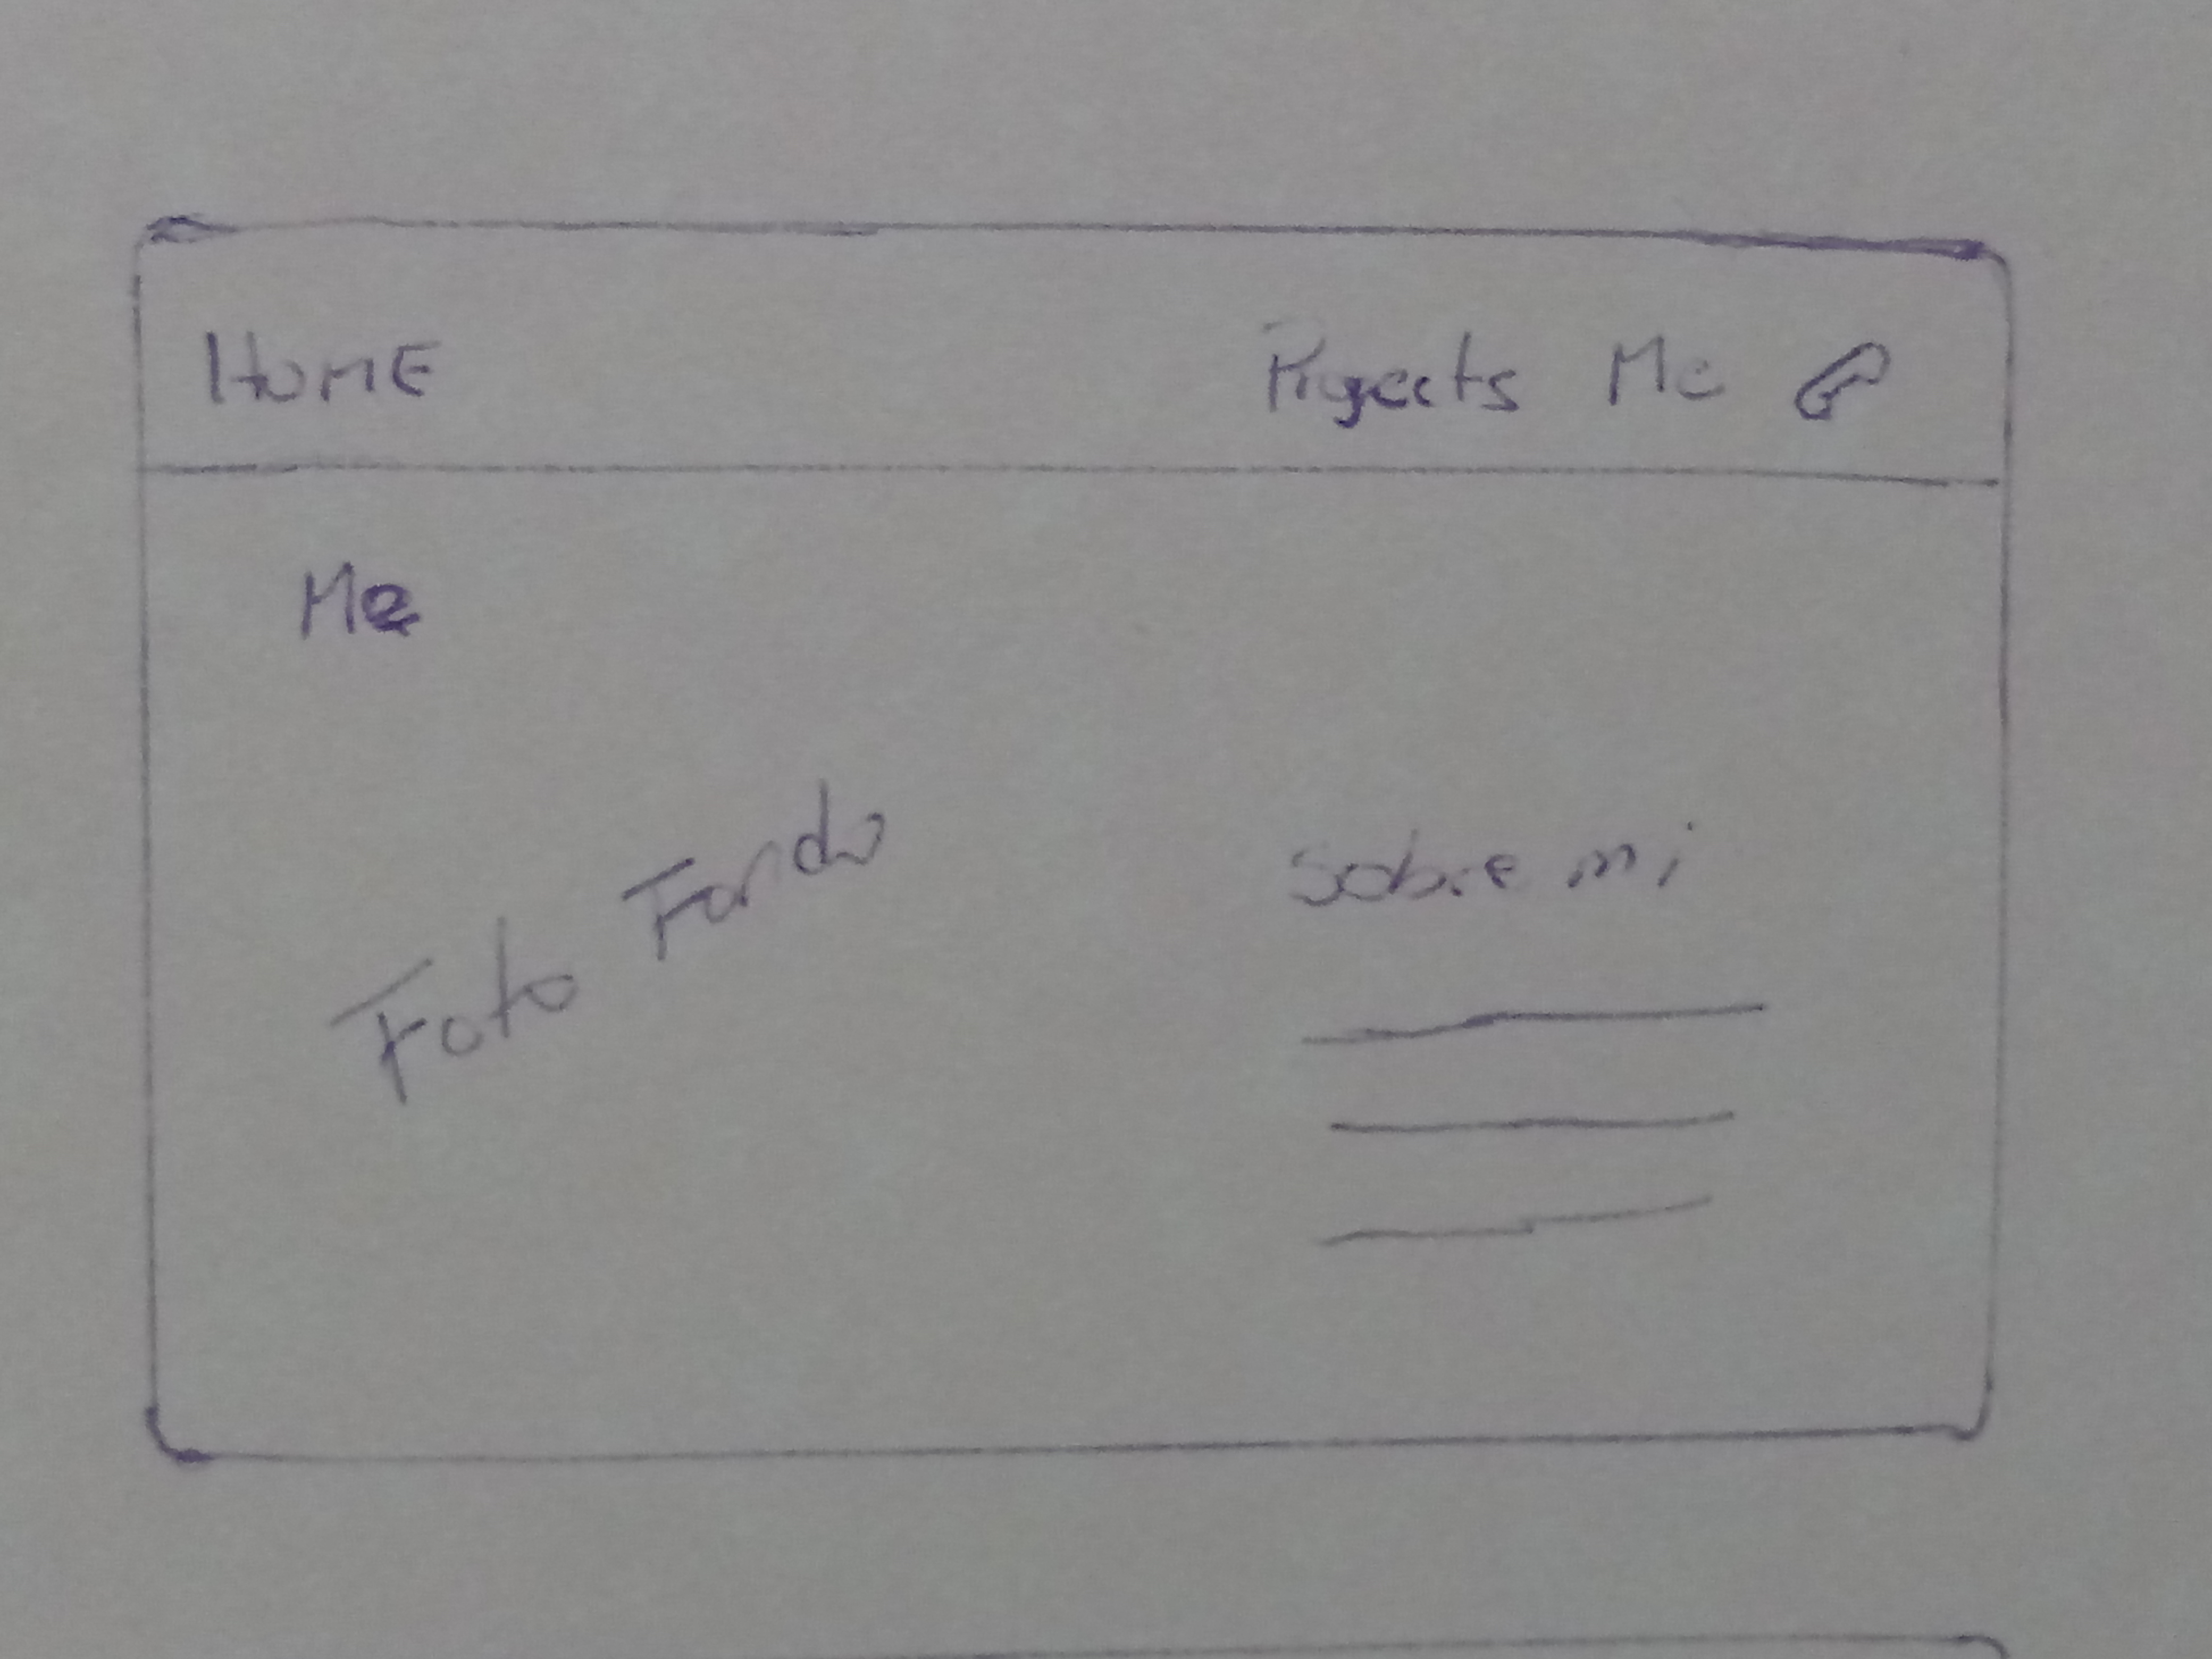 HOME Projects Me
Me
Foto Fondo
Sobre mi